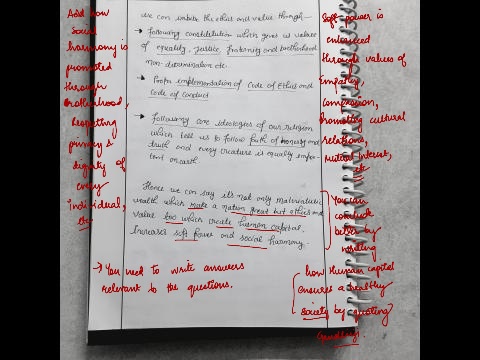 Add how
social
harmony is
promoted
through
Brotherhood,
Respecting
privacy &
dignity of
every
Individual,
etc
we can imbibe the ethics and value through—
→ Following constitution which gives us values
of equality, justice, fraternity and brotherhood
non-discrimination etc.
→ Proper implementation of Code of Ethics and
Code of Conduct
→ Following core ideologies of our religion
which tell us to follow path of honesty and
truth and every creature is equally impor-
tant on earth.
Hence we can say it's not only materialistic
wealth which make a nation great but ethics and
value too which create human capital.
Increases soft power and social harmony.
→ You need to write answers
relevant to the questions.
Soft power is
enhanced
through values of
Empathy,
compassion,
Promoting cultural
relations,
mutual Interest,
etc
You can
conclude
better by
writing
how Human capital
ensures a healthy
society by quoting
Gandhiji.